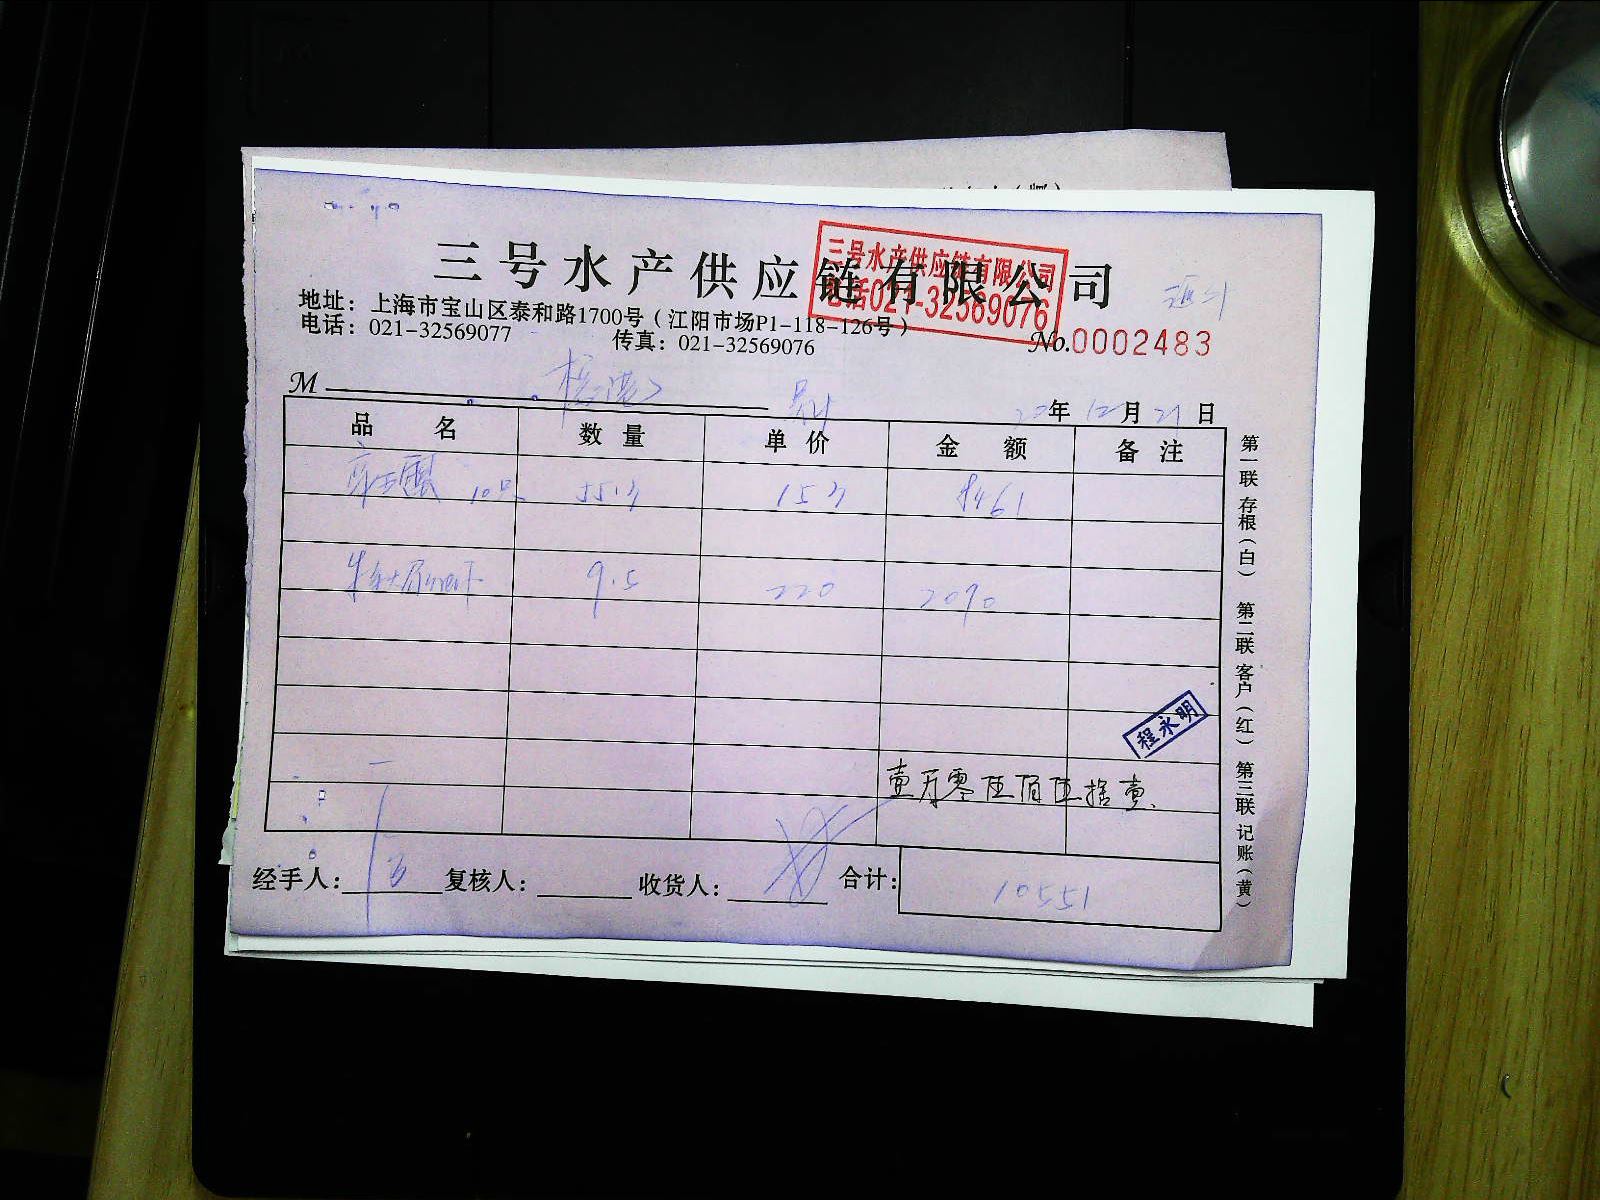 三号水产供应链有限公司
三号水产供应链有限公司
电话021-32569076
地址：上海市宝山区泰和路1700号（江阳市场P1-118-126号）
电话：021-32569077 传真：021-32569076
No.0002483
M
20年12月21日
品名 数量 单价 金额 备注
10只 8461
9.5 220 2090
程永明
壹万零伍佰伍拾壹
经手人： 复核人： 收货人： 合计：10551
第一联存根（白） 第二联客户（红） 第三联记账（黄）